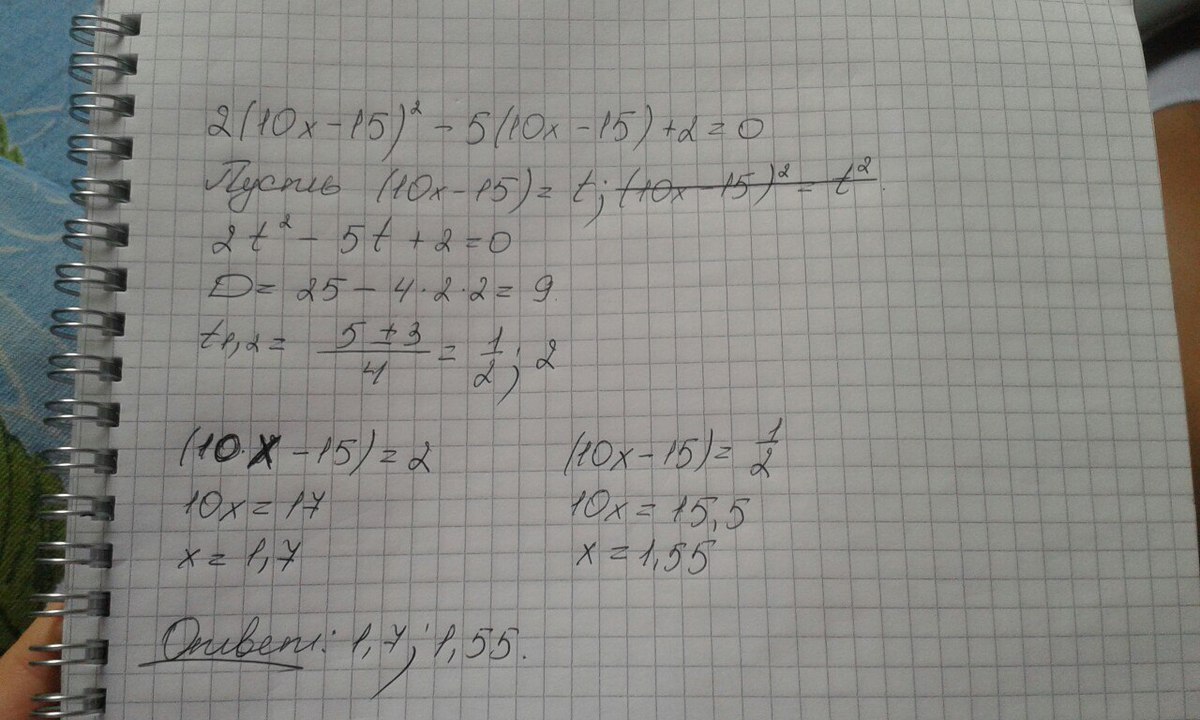 2(10x-15)² - 5(10x-15)+2=0
Пусть (10x-15)= t; (10x-15)²= t².
2t² - 5t +2=0
D= 25-4·2·2= 9.
t1,2= (5±3)/4 = 1/2; 2
(10·x-15)=2
10x=17
x=1,7
(10x-15)= 1/2
10x=15,5
x=1,55
Ответ: 1,7; 1,55.